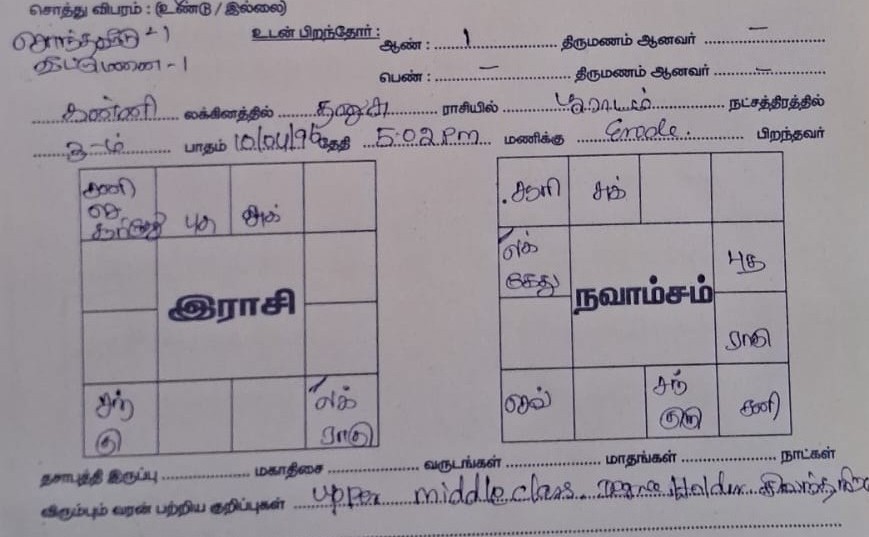 சொத்து விபரம் : (உண்டு / இல்லை)
சொந்தவீடு - 1 உடன் பிறந்தோர் : ஆண் : 1 திருமணம் ஆனவர் –
- 1 பெண் : – திருமணம் ஆனவர் –
கன்னி லக்கினத்தில் தனுசு ராசியில் பூராடம் நட்சத்திரத்தில்
2-ம் பாதம் 10/04/96 தேதி 5:02 PM மணிக்கு Erode. பிறந்தவர்
சனி
செ
புத சுக்
இராசி
சந்
கு
லக்
ராகு
சுக்
லக்
கேது
புத
நவாம்சம்
ராகு
செவ் சந்
குரு
சனி
தசாபுத்தி இருப்பு மகாதிசை வருடங்கள் மாதங்கள் நாட்கள்
விரும்பும் வரன் பற்றிய குறிப்புகள் upper middle class Holder